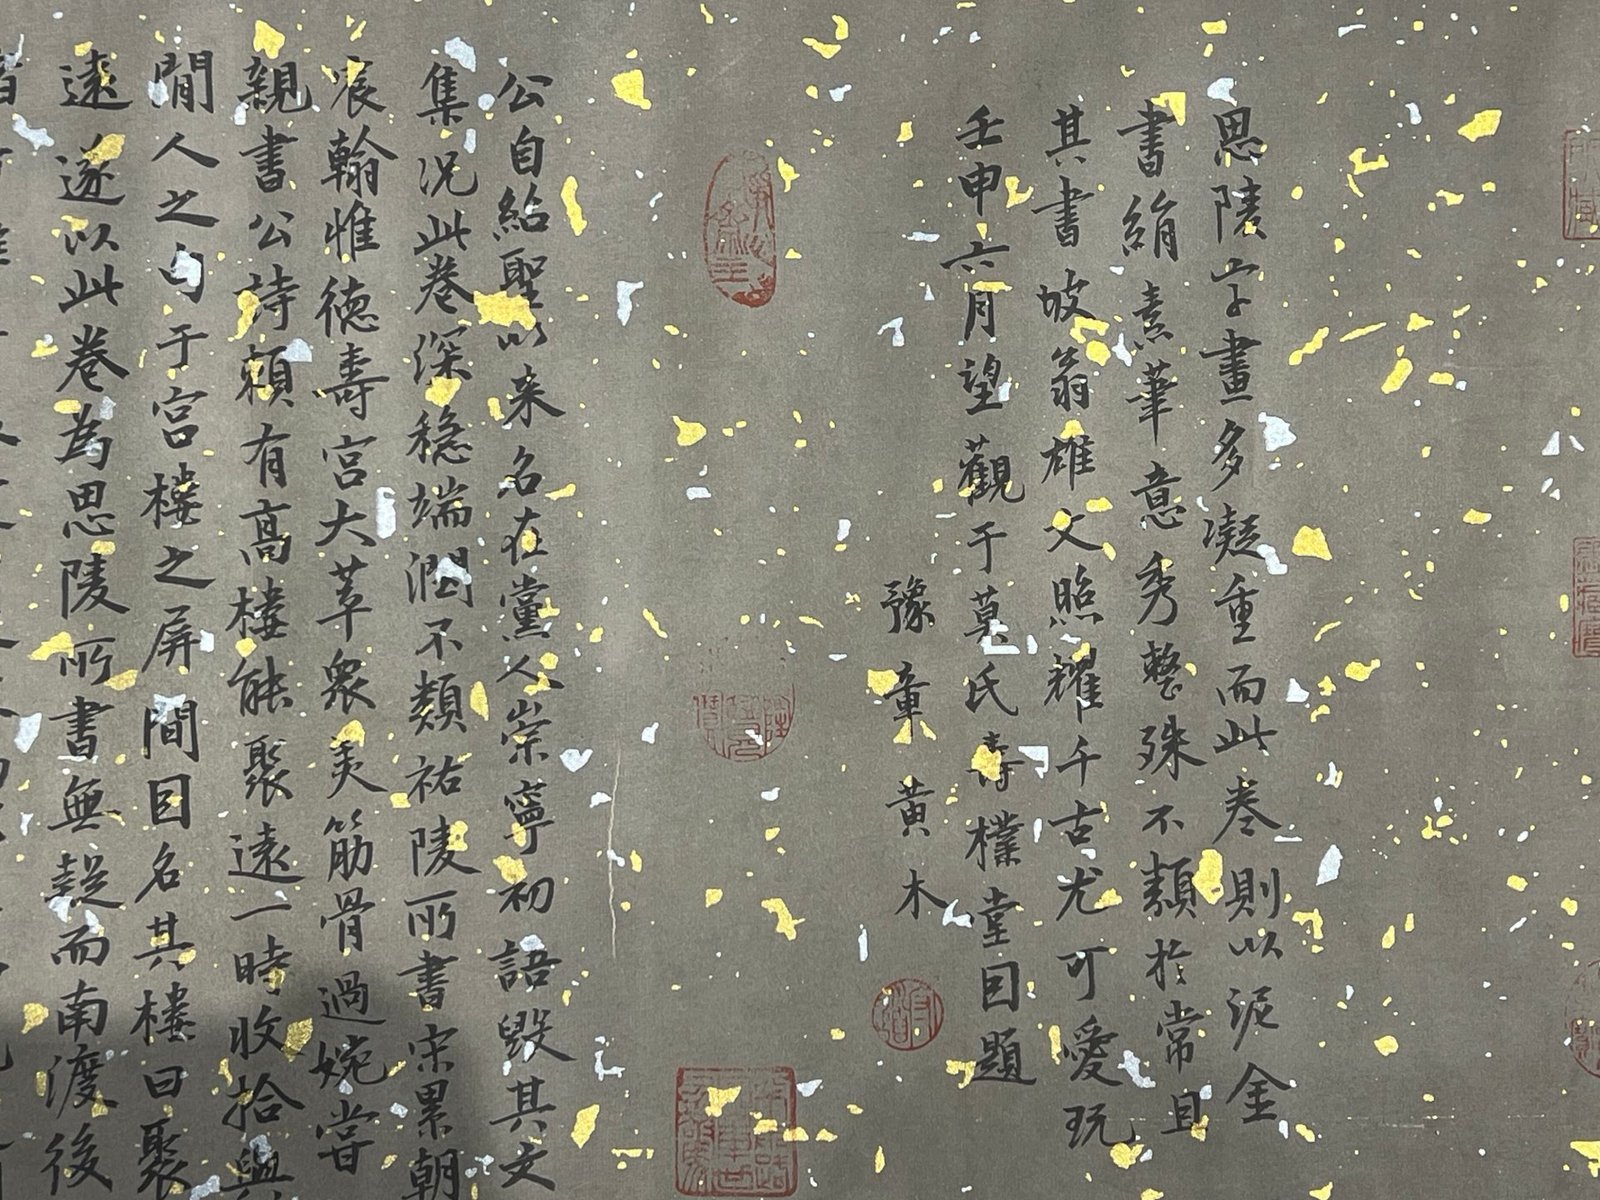 思陵字畫多凝重而此卷則以泥金
書絹素華意秀整殊不類於常且
其書坡翁雄文照耀千古尤可愛玩
壬申六月望觀于莫氏壽樸堂因題
豫章黄木
公自給聖以来名在黨人崇寧初語毀其文
集況此卷深穩端潤不類祐陵所書宋累朝
宸翰惟徳壽宮大萃衆美筋骨過婉嘗
親書公詩賴有高樓能聚遠一時收拾與
閒人之句于宫樓之屏間因名其樓曰聚
遠遂以此卷為思陵所書無疑而南渡後